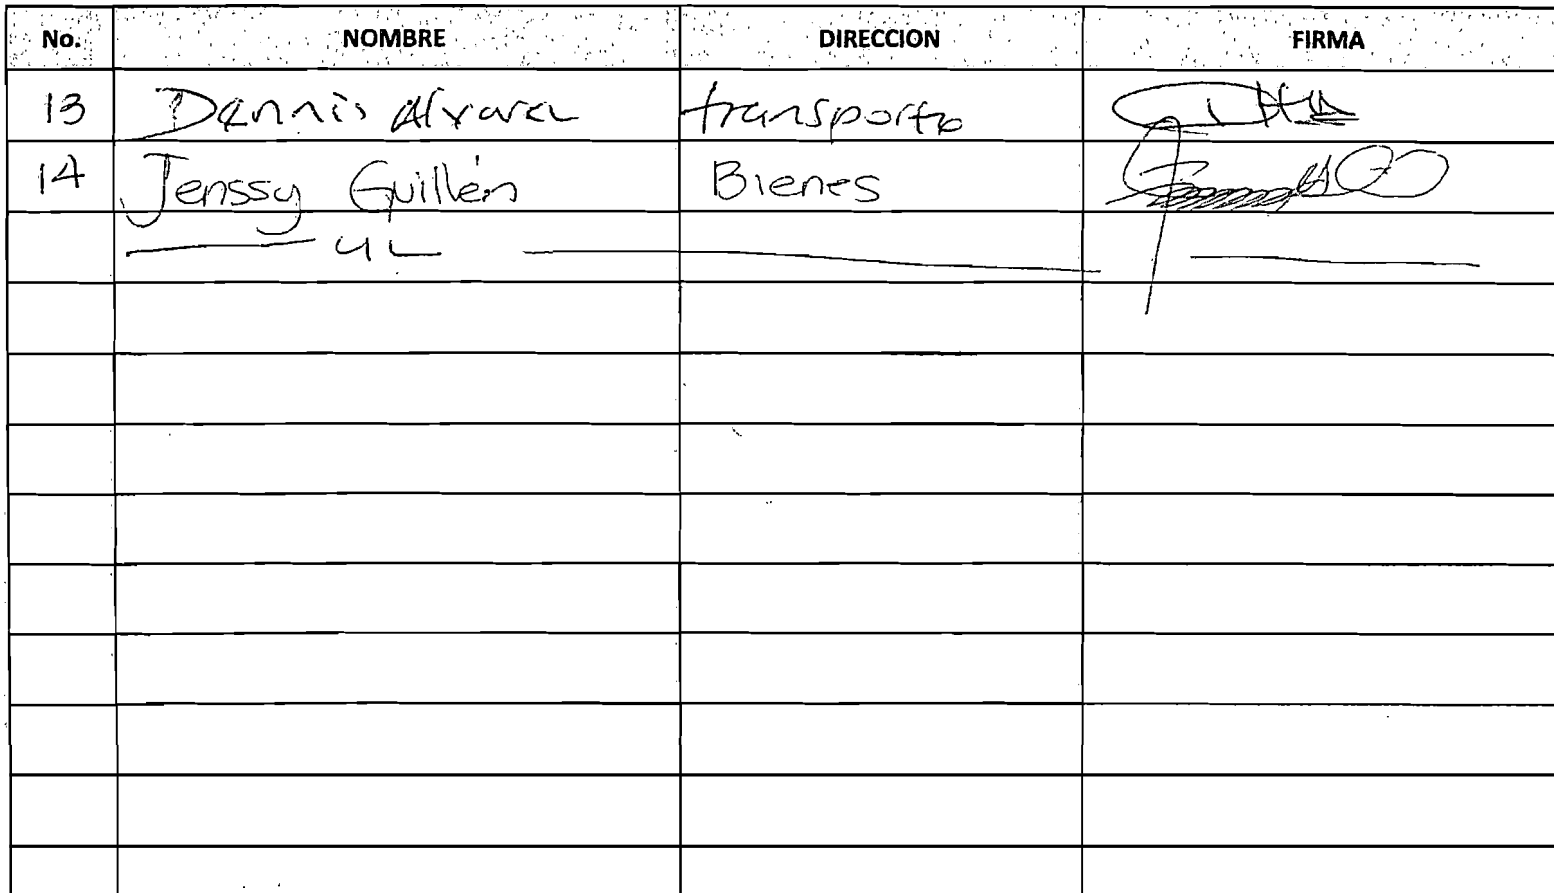 No. NOMBRE DIRECCION FIRMA
13 Dennis transporte
14 Jenssy Guillén Bienes
UL